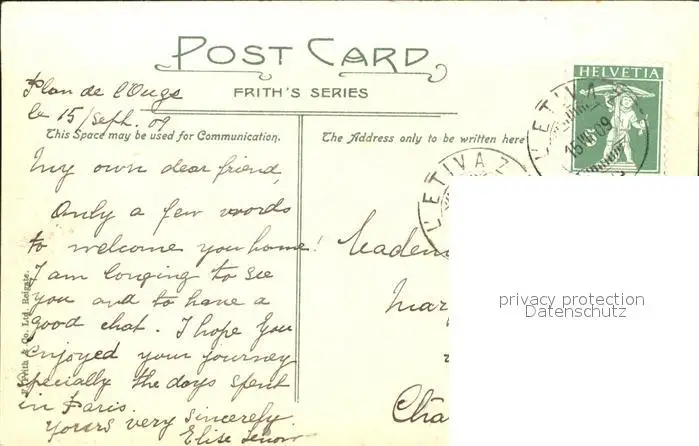 POST CARD
FRITH'S SERIES
HELVETIA
Plan de l'Ouge
le 15/Sept. 09
This Space may be used for Communication.
The Address only to be written here
My own dear friend,
Only a few words
to welcome you home!
I am longing to see
you and to have a
good chat. I hope you
enjoyed your journey
specially the days spent
in Paris.
Yours very sincerely
Elise
L'ETIVAZ
L'ETIVAZ
F. Frith & Co. Ltd. Reigate.
privacy protection
Datenschutz